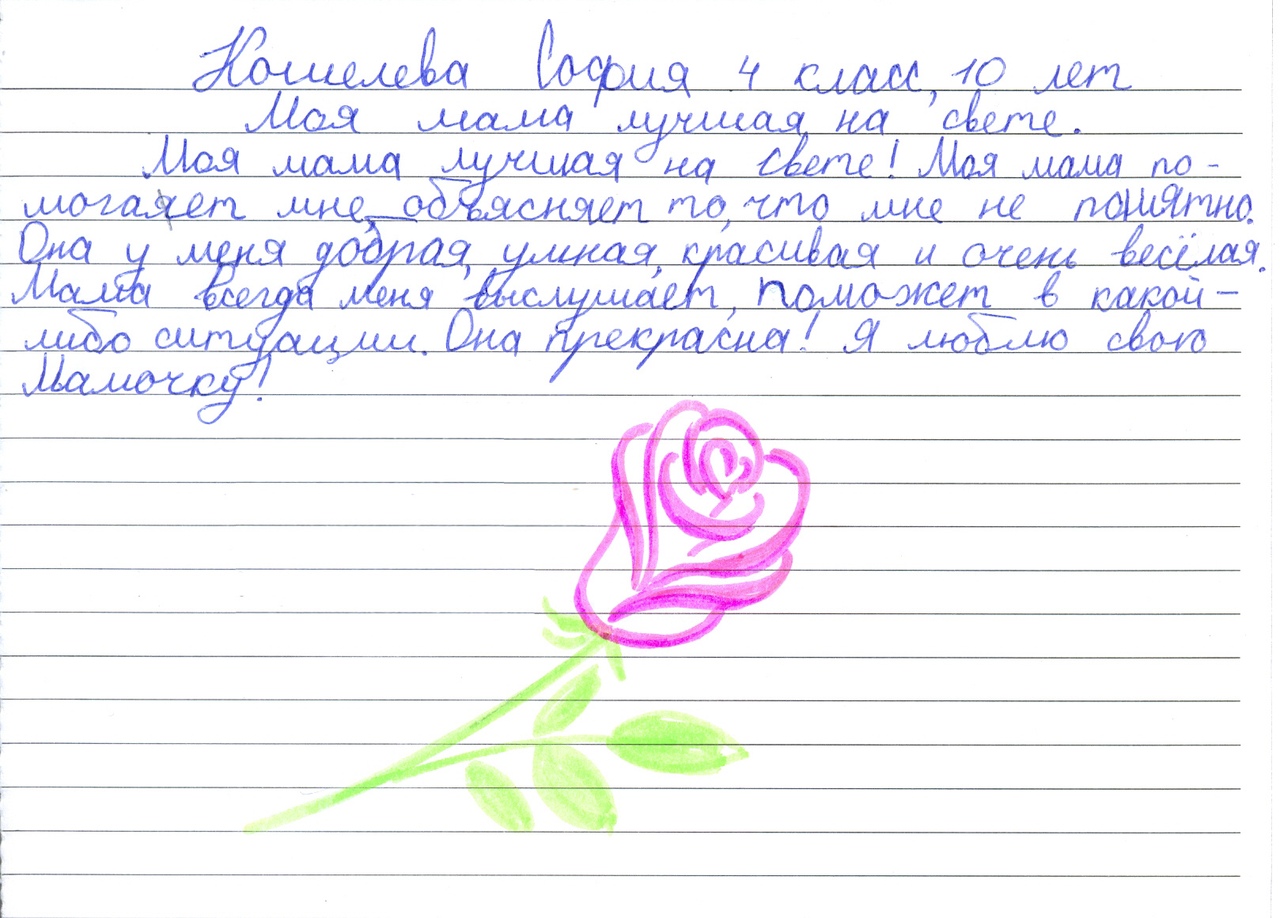 Кошелева София 4 класс, 10 лет
Моя мама лучшая на свете.
Моя мама лучшая на свете! Моя мама по-
могает мне, объясняет то, что мне не понятно.
Она у меня добрая, умная, красивая и очень весёлая.
Мама всегда меня выслушает, поможет в какой-
либо ситуации. Она прекрасна! Я люблю свою
Мамочку!